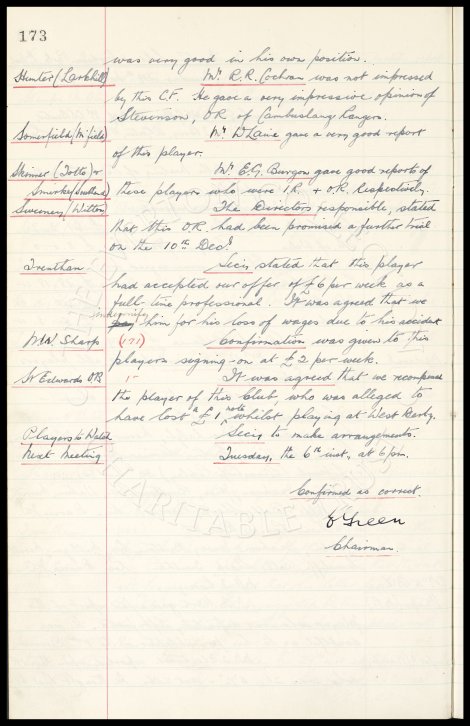 173
was very good in his own position.
Hunter (Larkhill) Mr. R.R. Cochran was not impressed
by this C.F. He gave a very impressive opinion of
Stevenson, O.R. of Cambuslang Rangers.
Somerfield (M'field) Mr. W Laine gave a very good report
of this player.
Skinner (Totto) or Mr. E.G. Burgon gave good reports of
Smurky (Sunland) these players who were I.R. + O.R. Respectively.
Sweeney (Witton) The Directors responsible, stated
that this O.R. had been promised a further trial
on the 10th Dec?
Trenthan Secy stated that this player
had accepted our offer of £6 per week as a
full-time professional. It was agreed that we
indemnify him for his loss of wages due to his accident
Wm Sharps (171) Confirmation was given to this
players signing-on at £2 per week.
W Edwards OB It was agreed that we recompense
the player of this Club, who was alleged to
have lost a £1 note whilst playing at West Kirby.
Players to Watch Secy to make arrangements.
Next Meeting Tuesday, the 6th inst., at 6 pm.
Confirmed as correct.
E Green
Chairman.
CHARITABLE